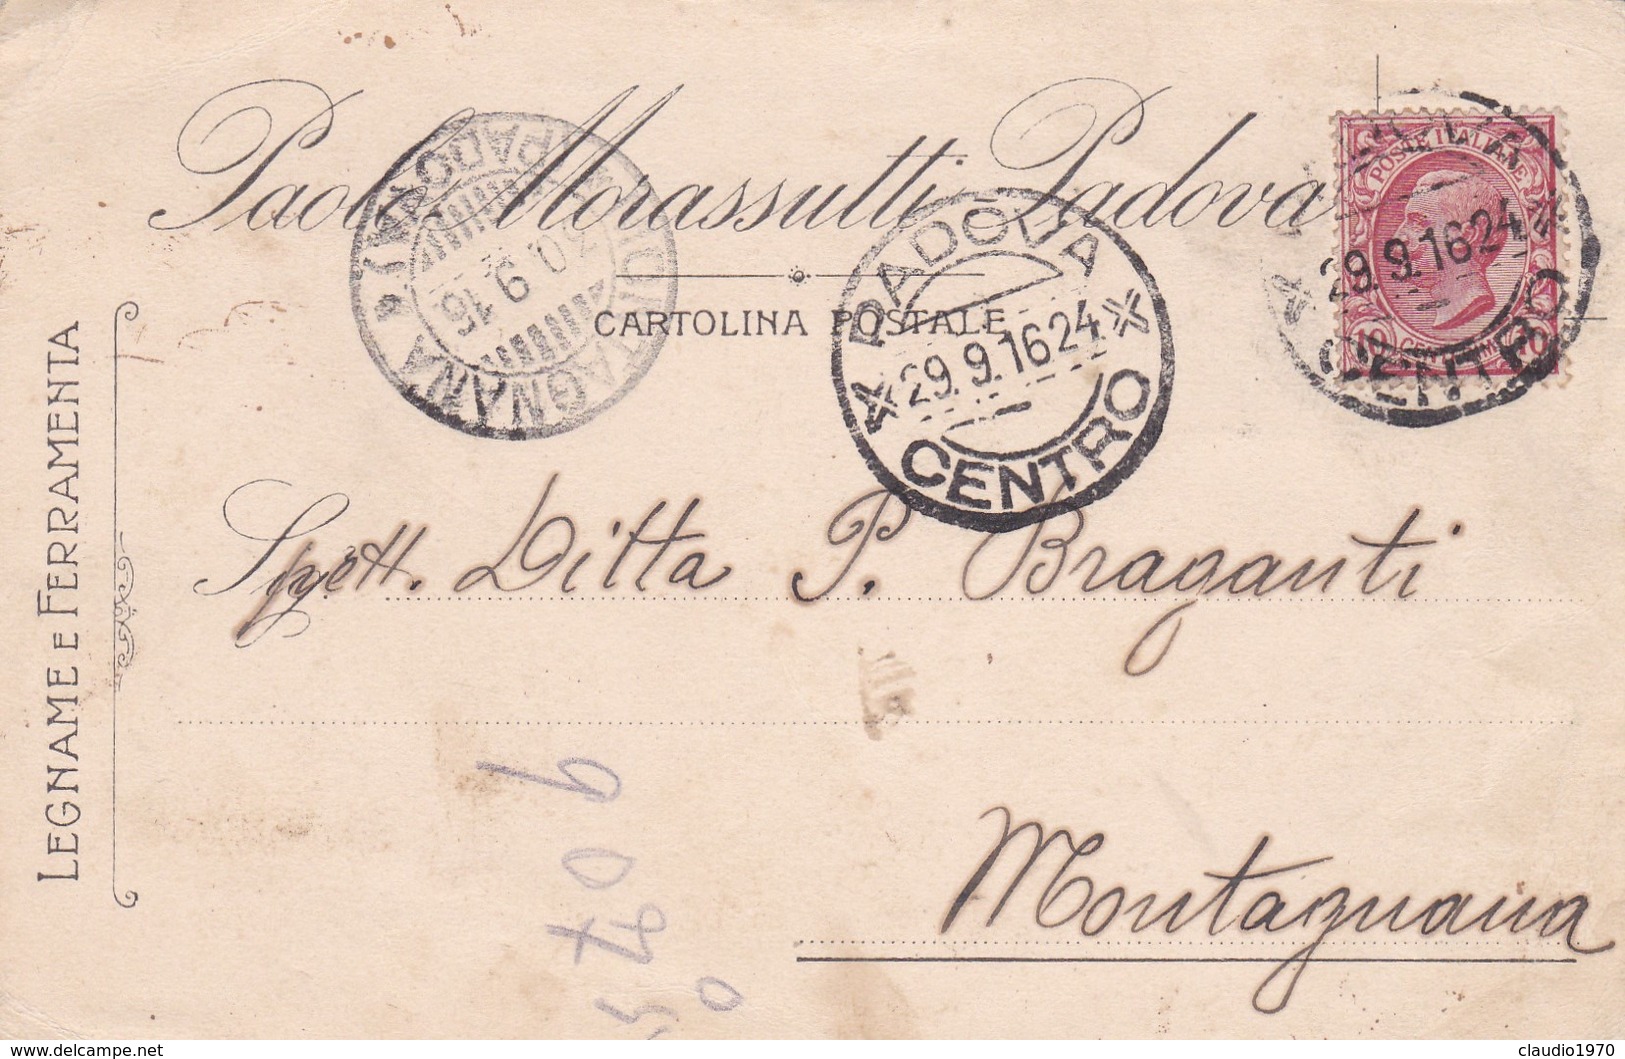 Paolo Morassutti - Padova
CARTOLINA POSTALE
LEGNAME E FERRAMENTA
MONTAGNANA
(PADOVA)
30.9.16
PADOVA
29.9.16 24
CENTRO
POSTE ITALIANE
29.9.16 24
10 10
CENTRO
Spett. Ditta P. Braganti
Montagnana
delcampe.net
claudio1970